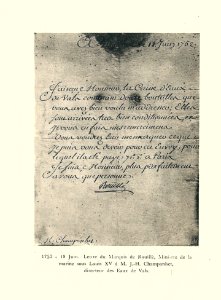 18 Juin 1752
J'ai reçu Monsieur, la Caisse d'Eaux
de Vals contenant Douze bouteilles que
vous avez bien voulu m'adresser. Elles
sont arrivées bien conditionnées, et
je vous en fais mes remerciemens.
Vous voudrez bien me marquer ce que
je puis vous devoir pour cet Envoy, pour
lequel j'ay payé à Paris
Je suis, Monsieur, plus parfaitement
à vous, que personne.
Rouillé
M. Champanhet
1752 - 18 Juin. Lettre du Marquis de Rouillé, Ministre de la
marine sous Louis XV à M. J.-H. Champanhet,
directeur des Eaux de Vals.